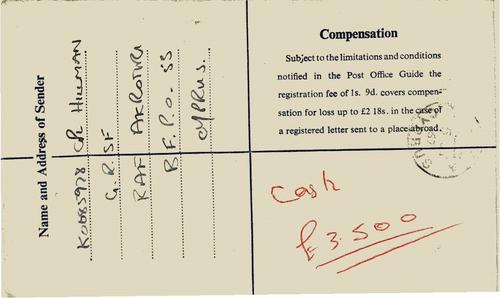 Compensation
Subject to the limitations and conditions
notified in the Post Office Guide the
registration fee of 1s. 9d. covers compen-
sation for loss up to £2 18s. in the case of
a registered letter sent to a place abroad.
Name and Address of Sender
HILLMAN
RAF AKROTIRI
B.F.P.O. 53
CYPRUS.
Cash
£3.500